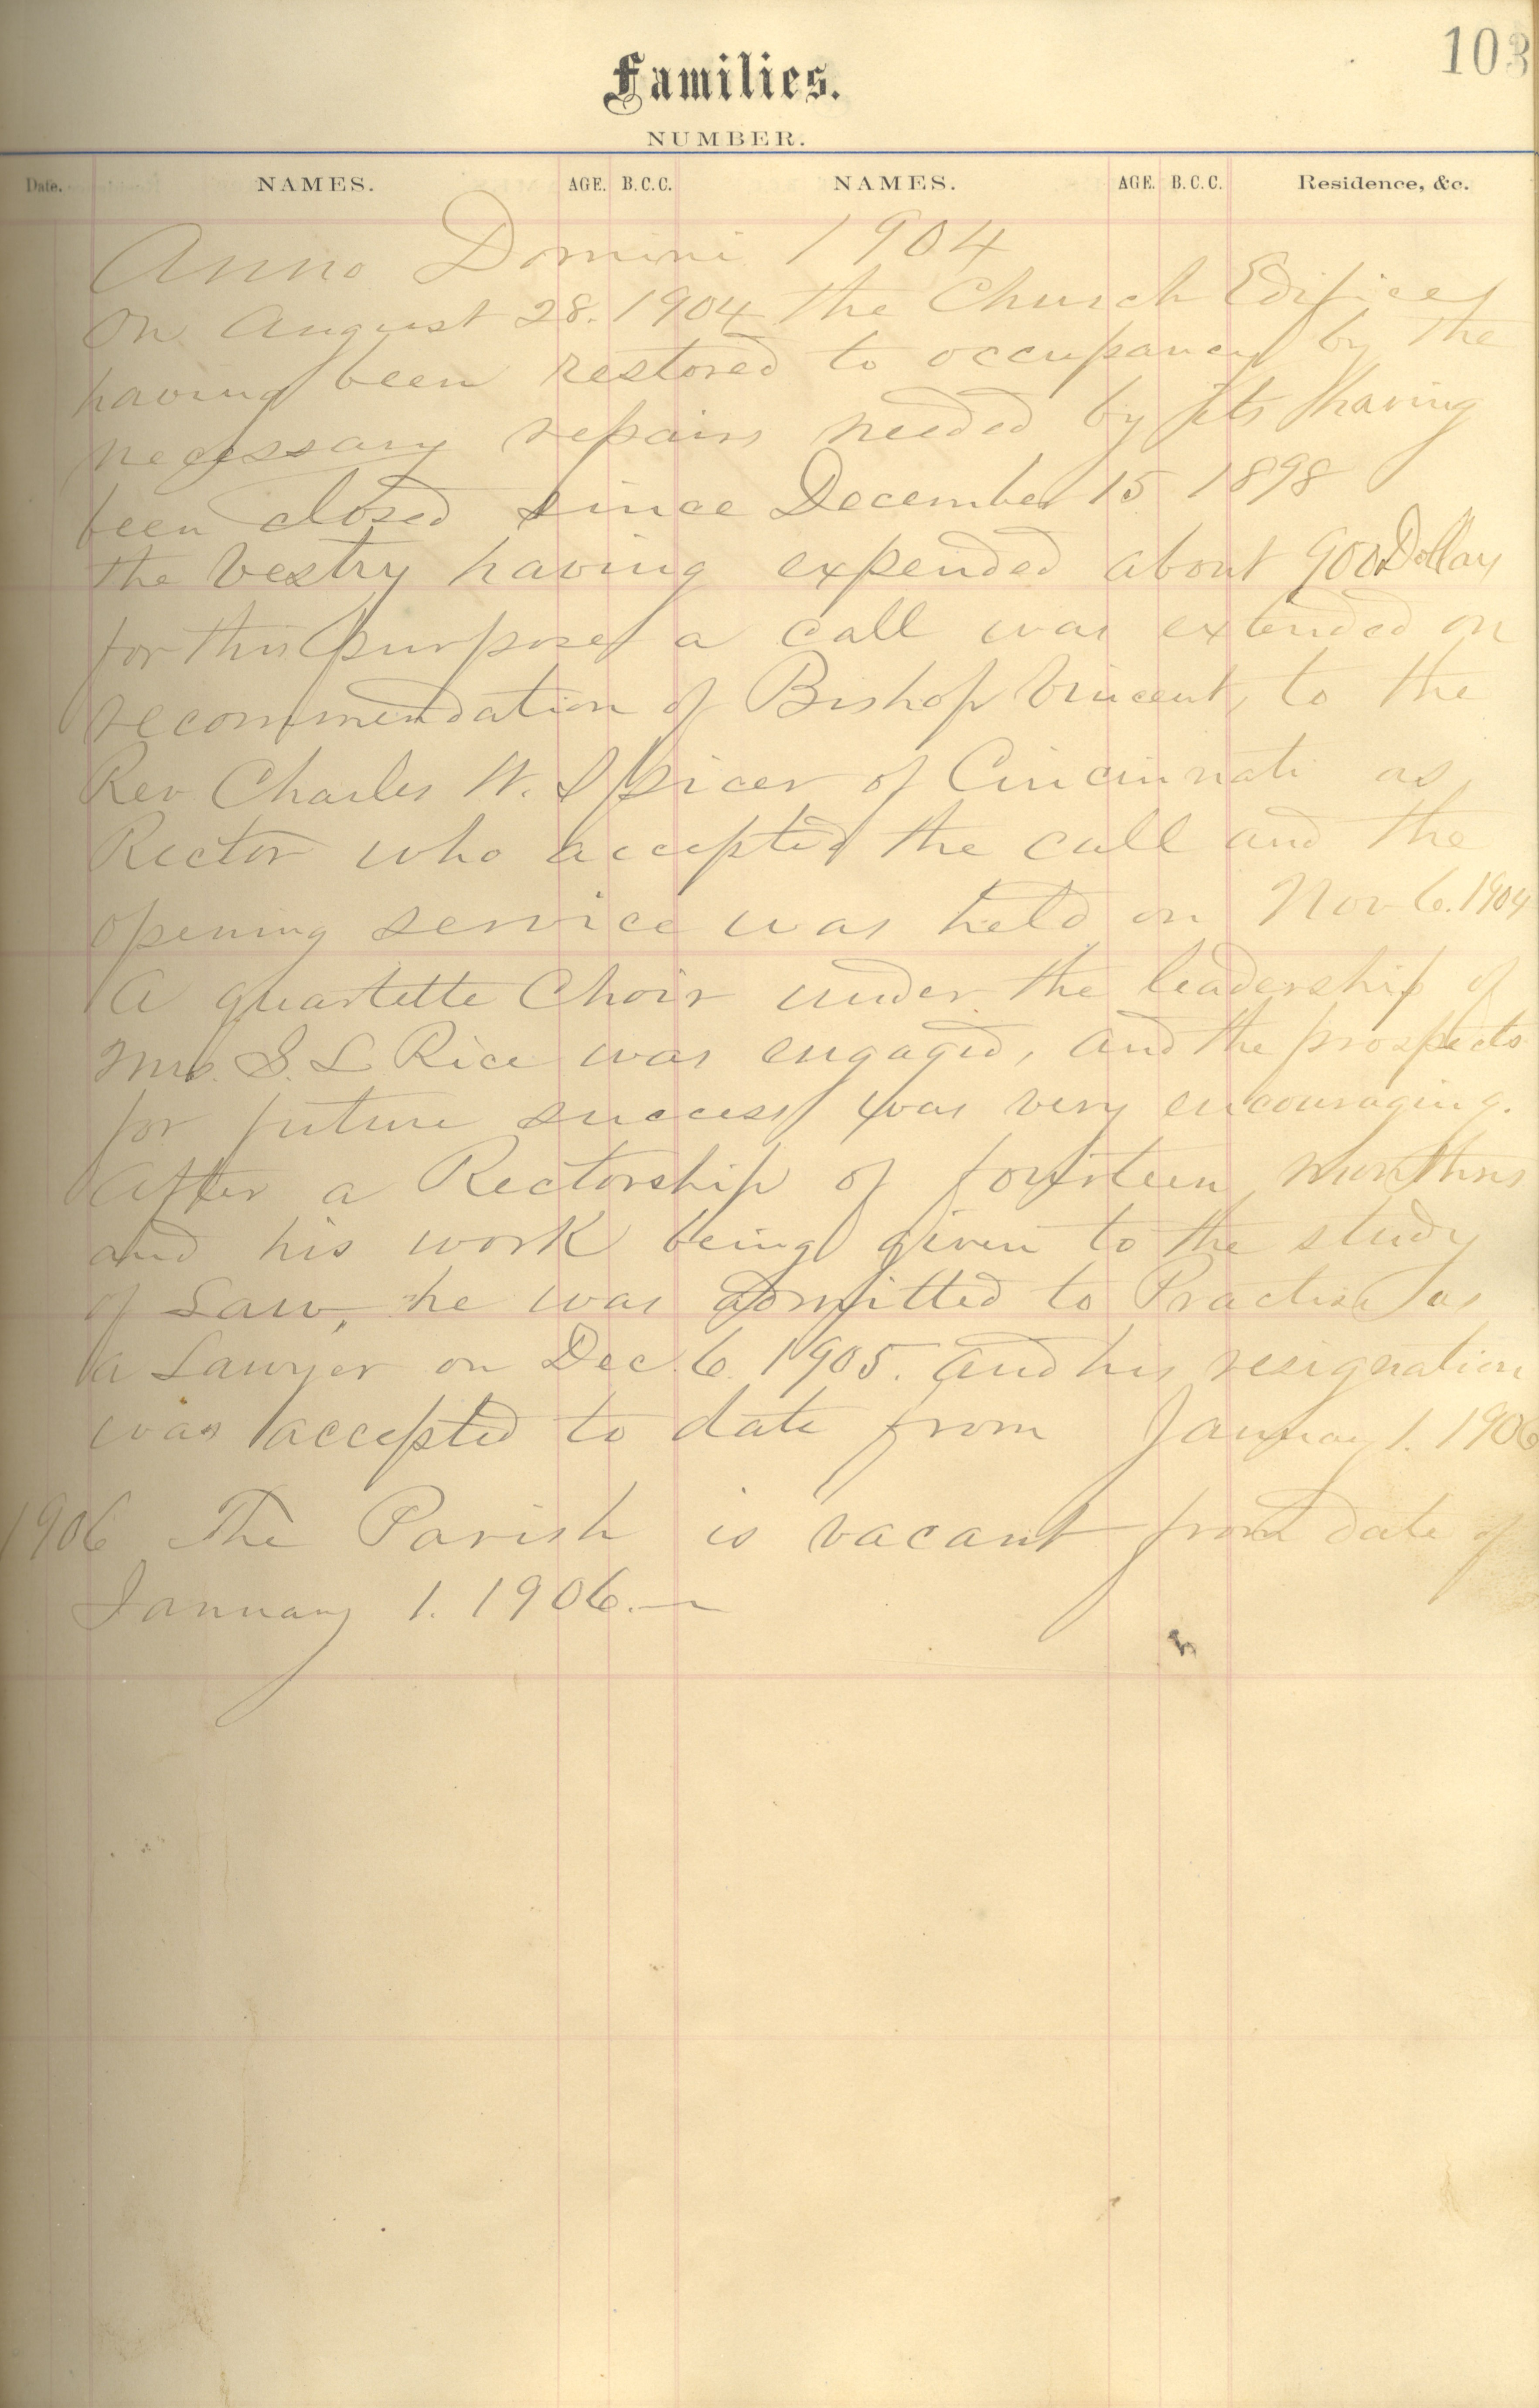 103
Families.
NUMBER.
Date. NAMES. AGE. B.C.C. NAMES. AGE. B.C.C. Residence, &c.
Anno Domini 1904
On August 28. 1904 the Church Edifice
having been restored to occupancy by the
necessary repairs needed by its having
been closed since December 15 1898
the Vestry having expended about 900 Dollars
for this purpose a call was extended on
recommendation of Bishop Vincent, to the
Rev Charles W. Spicer of Cincinnati as
Rector who accepted the call and the
opening service was held on Nov 6. 1904
A quartette Choir under the leadership of
Mrs. S. L Rice was engaged, and the prospects
for future success was very encouraging.
After a Rectorship of fourteen months
and his work being given to the study
of Law, he was admitted to Practise as
a Lawyer on Dec. 6. 1905. and his resignation
was accepted to date from January 1. 1906
1906 The Parish is vacant from date of
January 1. 1906.—